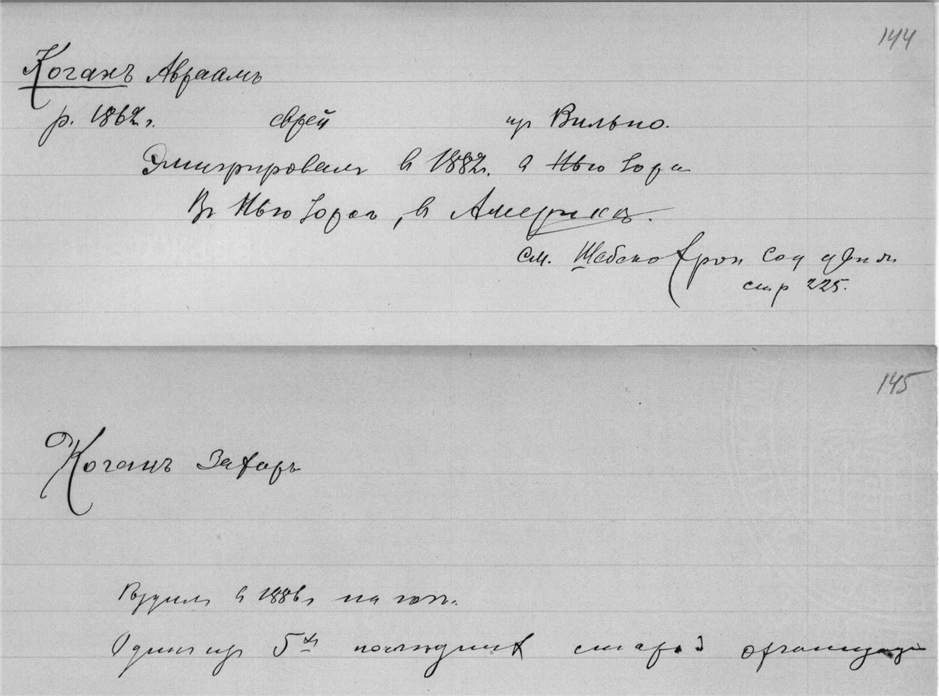 144
Коганъ Авраамъ
р. 1862 г. еврей из Вильно.
Эмигрировалъ в 1882 г. в Нью Iорк
В Нью Iорке, в Америке.
см. Шебеко Хрон Соц движ.
стр 225.
145
Коганъ Захаръ
в 1886 г на юге.
Один из 5х последних старой организации